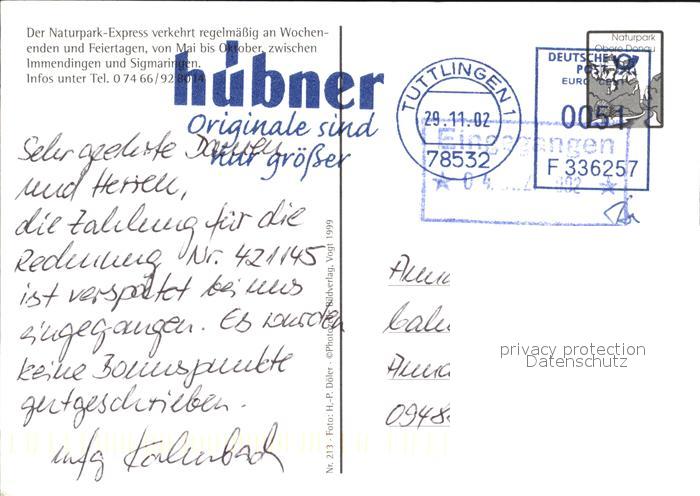 Der Naturpark-Express verkehrt regelmäßig an Wochen-
enden und Feiertagen, von Mai bis Oktober, zwischen
Immendingen und Sigmaringen.
Infos unter Tel. 0 74 66/92 80 14
hübner
Originale sind
nur größer
TUTTLINGEN 1
29.11.02
78532
Naturpark
Obere Donau
DEUTSCHE
POST
EURO CENT
0051
F 336257
Eingegangen
Sehr geehrte Damen
und Herren,
die Zahlung für die
Rechnung Nr. 421145
ist verspätet bei uns
eingegangen. Es wurden
keine Bonuspunkte
gutgeschrieben.
mfg Kalmbach
Nr. 213 - Foto: H.-P. Döler - ©Photo- Bildverlag, Vogt 1999
Anna
0948
privacy protection
Datenschutz